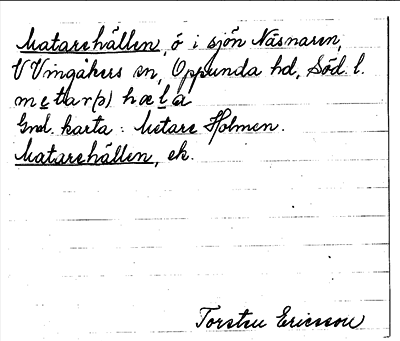 Matarehällen, ö i sjön Näsnaren,
V Vingåkers sn, Oppunda hd, Söd. l.
metar(ə) hæla
Gnrl. karta: Metare Holmen.
Matarehällen, ek.
Torsten Ericsson